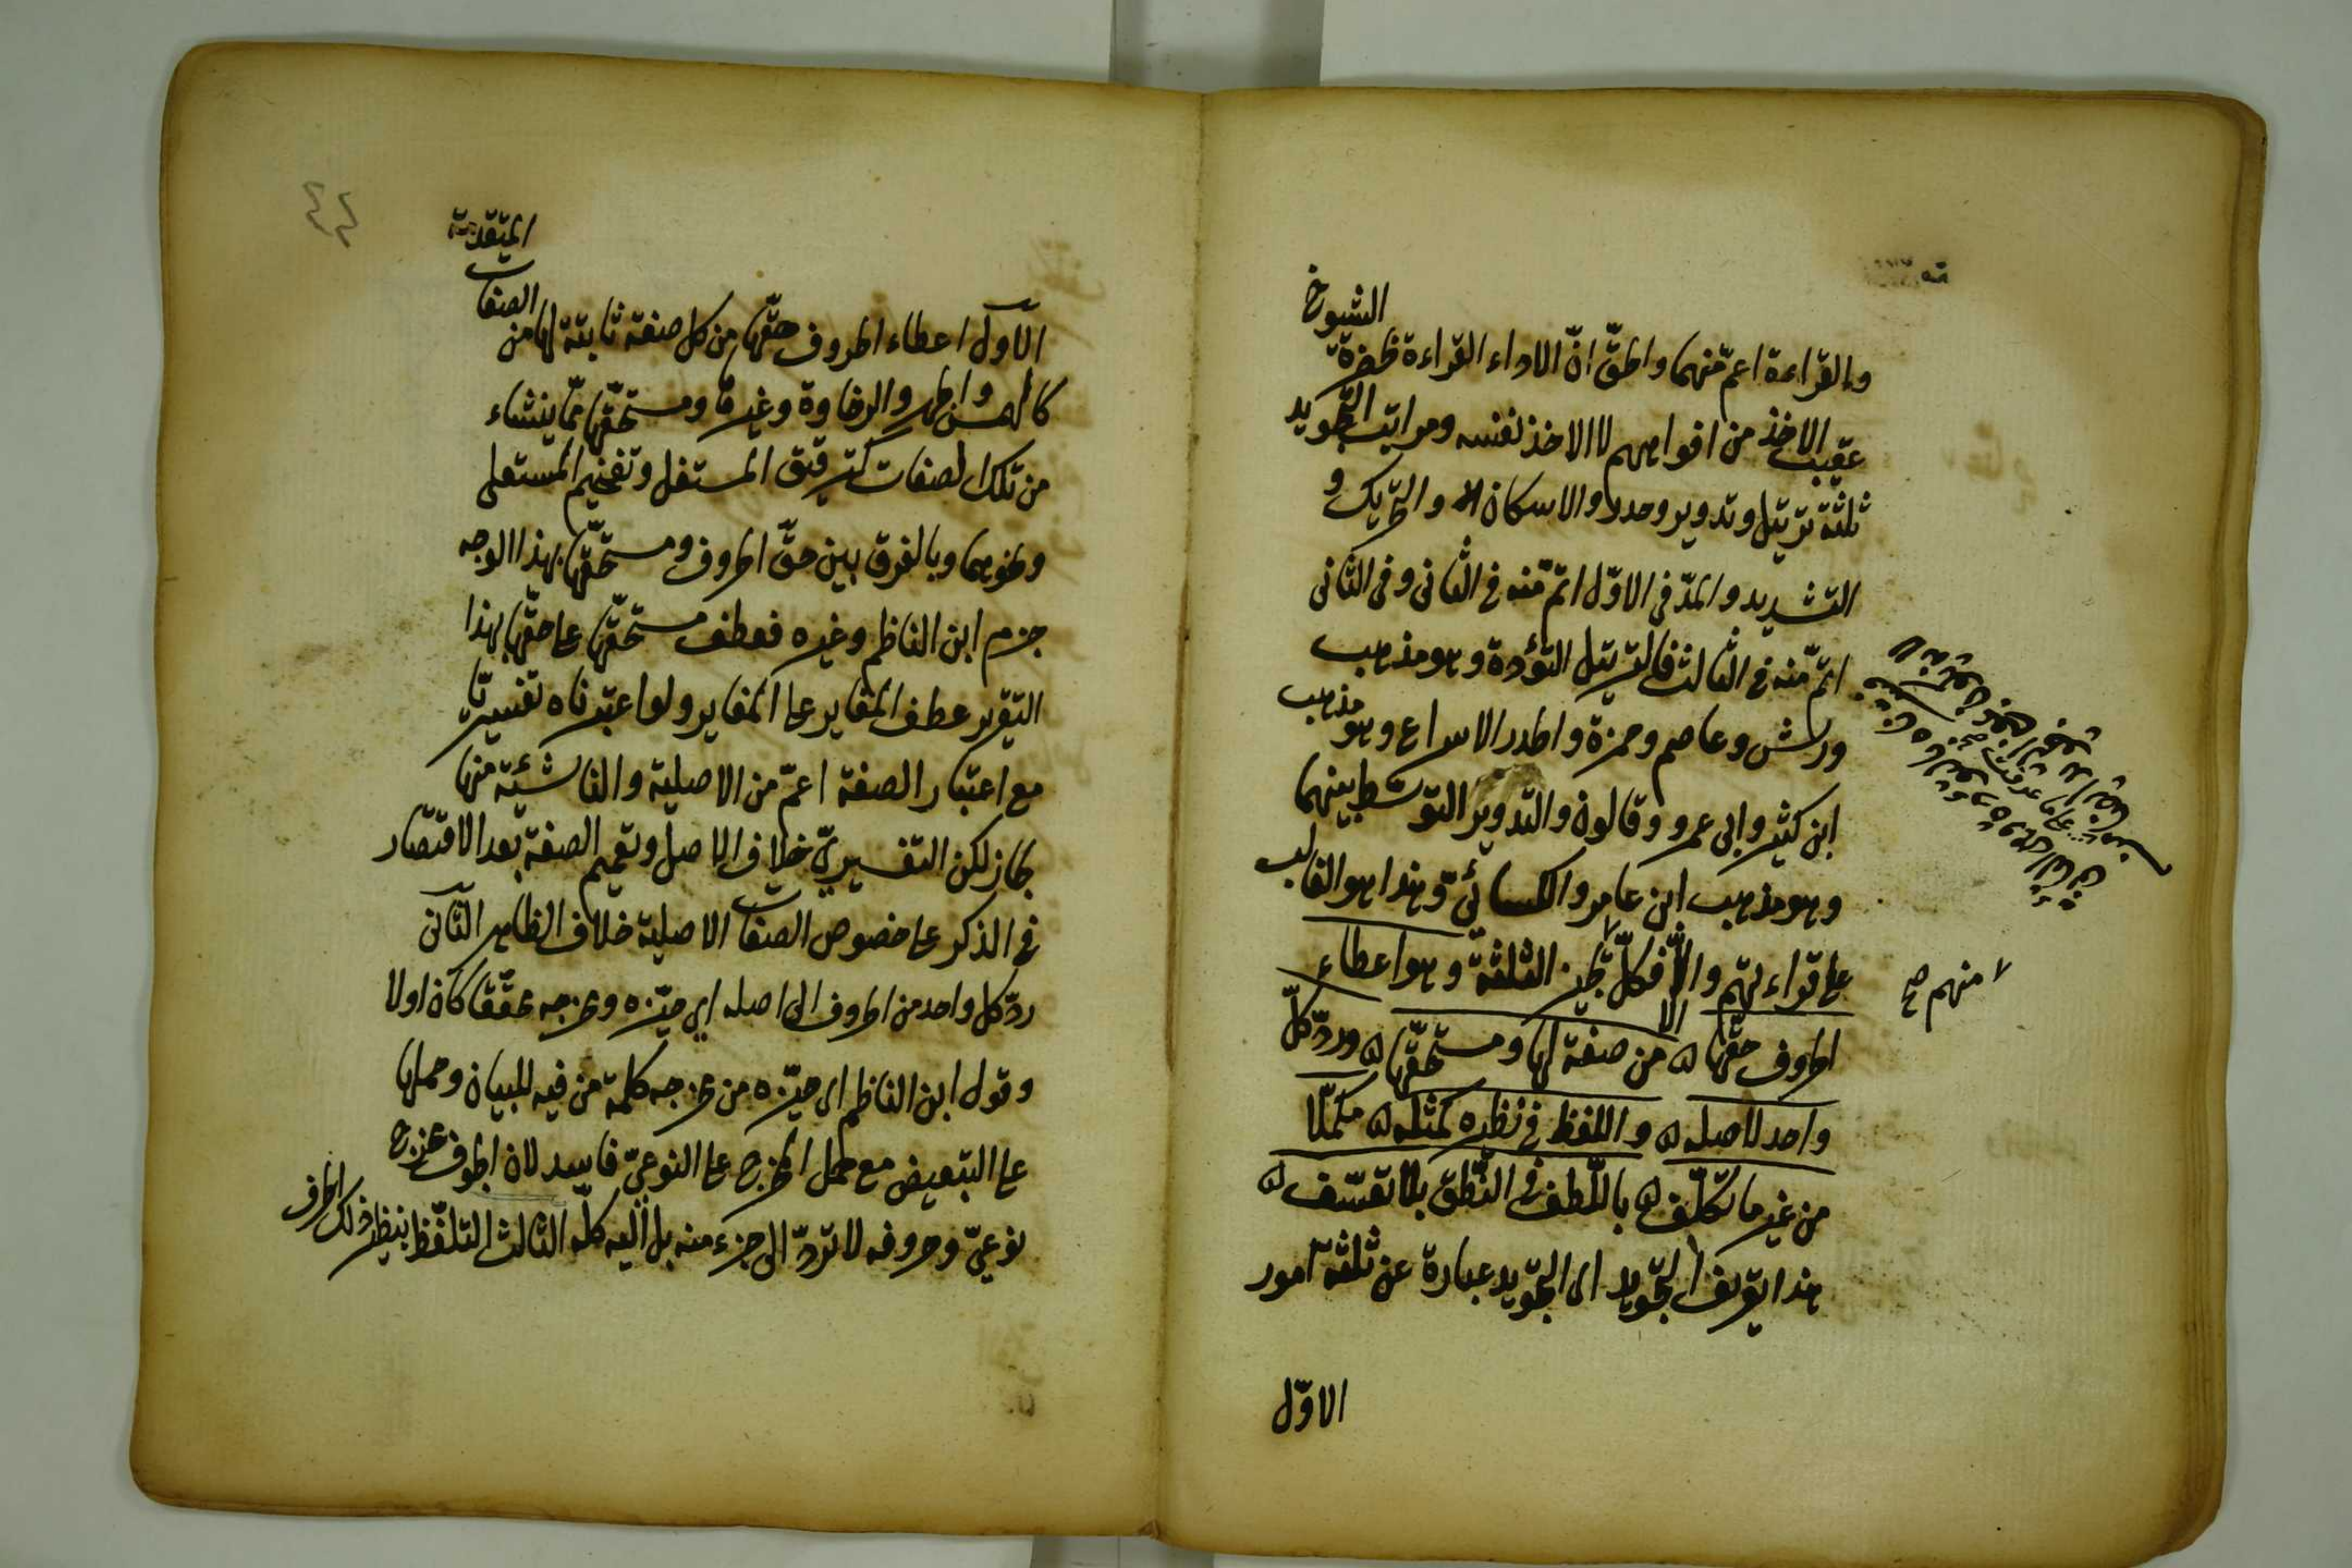 الشيوخ
والقراءة اعمّ منهما والحقّ انّ الاداء القراءة بحضرة
عقيب الاخذ من افواههم لا الاخذ نفسه ومراتب التجويد
ثلثة ترتيل وتدوير وحدر والاسكان والتحريك و
التشديد والمدّ فى الاوّل اتمّ منه فى الثانى وفى الثانى
اتمّ منه فى الثالث فالترتيل التؤدة وهو مذهب
ورش وعاصم وحمزة والحدر الاسراع وهو مذهب
ابن كثير وابى عمرو وقالون والتدوير التوسّط بينهما
وهو مذهب ابن عامر والكسائىّ وهذا هو الغالب
على قراءتهم والّا فكلّ يجيز الثلثة وهو اعطاء
٧ منهم صح
الحروف حقّها من صفة لها ومستحقّها وردّ كلّ
واحد لاصله واللفظ فى نظيره كمثله مكمّلا
من غير ما تكلّف باللّطف فى النّطق بلا تعسّف
هذا تعريف التجويد اى التجويد عبارة عن ثلثة امور
الاوّل
٤٤
المتقدّمة
الاوّل اعطاء الحروف حقّها من كل صفة ثابتة لها من الصفات
كالهمس والجهر والرخاوة وغيرها ومستحقّها ممّا ينشاء
من تلك الصفات كترقيق المستفل وتفخيم المستعلى
ونحوهما وبالفرق بين حقّ الحروف ومستحقّها بهذا الوجه
جزم ابن الناظم وغيره فعطف مستحقّها على حقّها بهذا
التقرير عطف المغاير على المغاير ولو اعتبرناه تفسيريّا
مع اعتبار الصفة اعمّ من الاصلية والناشئة منها
لجاز لكن التفسيرىّ خلاف الاصل وتعميم الصفة بعد الاقتصار
فى الذكر على خصوص الصفات الاصلية خلاف الظاهر الثانى
ردّ كل واحد من الحروف الى اصله اى حيّزه ومخرجه محقّقا كان اولا
وقول ابن الناظم اى حيّزه من مخرجه كلمة من فيه للبيان وحملها
على التبعيض مع حمل المخرج على النوعىّ فاسد لان الحروف مخرج
نوعىّ وحروفه لا تردّ الى جزء منه بل اليه كلّه الثالث التلفّظ بنظير ذلك الحرف